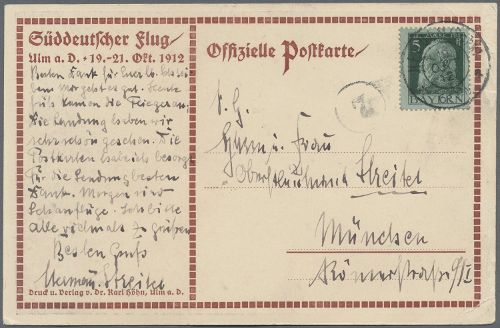 Süddeutscher Flug
Ulm a. D. • 19.-21. Okt. 1912
Besten Dank für
früh kamen die Flieger an.
Die Landung haben wir
sehr schön gesehen. Die
Postkarten habe ich besorgt
Für die Sendung besten
Dank. Morgen sind
Schauflüge. Ich bitte
alle vielmals z. grüßen
Besten Gruß
Hermann Streitel
Druck u. Verlag v. Dr. Karl Höhn, Ulm a. D.
Offizielle Postkarte
5
BAYERN
S. H.
Herrn u. Frau
Oberstleutnant Streitel
München
Römerstraße